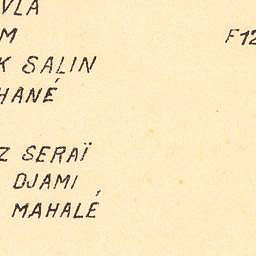 VLA
M F12
K SALIN
HANÉ
Z SERAÏ
DJAMI
MAHALÉ